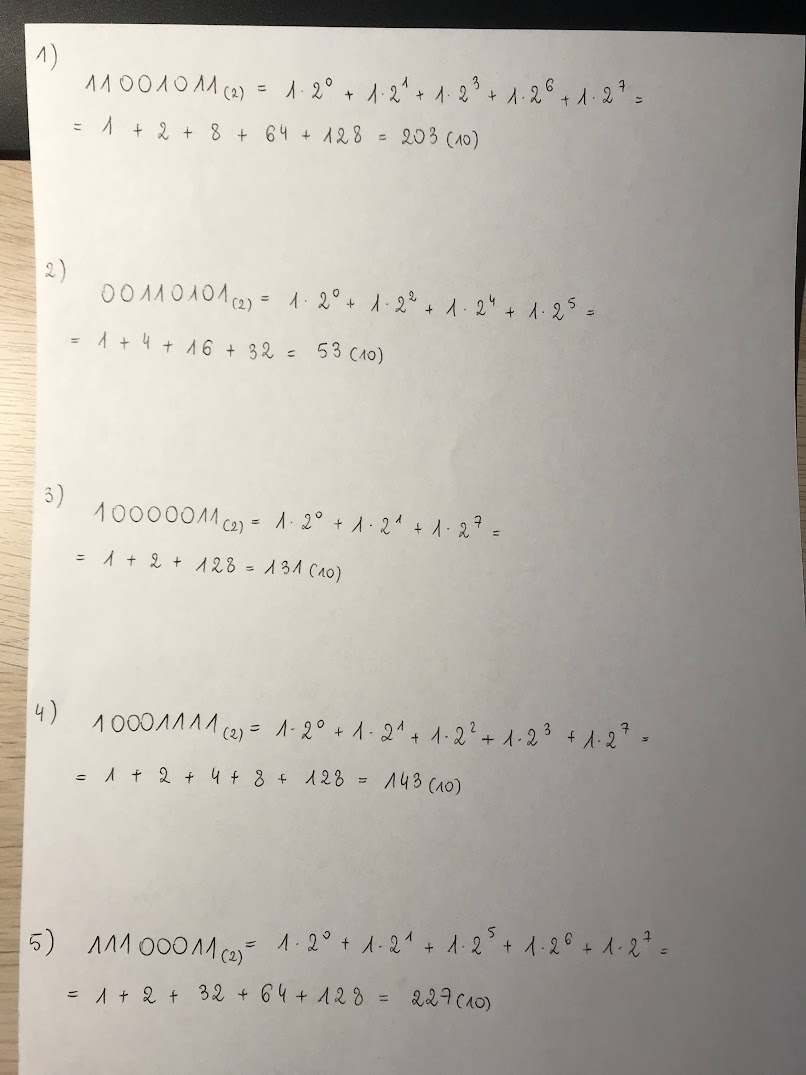 1)
11001011₍₂₎ = 1·2⁰ + 1·2¹ + 1·2³ + 1·2⁶ + 1·2⁷ =
= 1 + 2 + 8 + 64 + 128 = 203₍₁₀₎
2)
00110101₍₂₎ = 1·2⁰ + 1·2² + 1·2⁴ + 1·2⁵ =
= 1 + 4 + 16 + 32 = 53₍₁₀₎
3)
10000011₍₂₎ = 1·2⁰ + 1·2¹ + 1·2⁷ =
= 1 + 2 + 128 = 131₍₁₀₎
4)
10001111₍₂₎ = 1·2⁰ + 1·2¹ + 1·2² + 1·2³ + 1·2⁷ =
= 1 + 2 + 4 + 8 + 128 = 143₍₁₀₎
5) 11100011₍₂₎ = 1·2⁰ + 1·2¹ + 1·2⁵ + 1·2⁶ + 1·2⁷ =
= 1 + 2 + 32 + 64 + 128 = 227₍₁₀₎